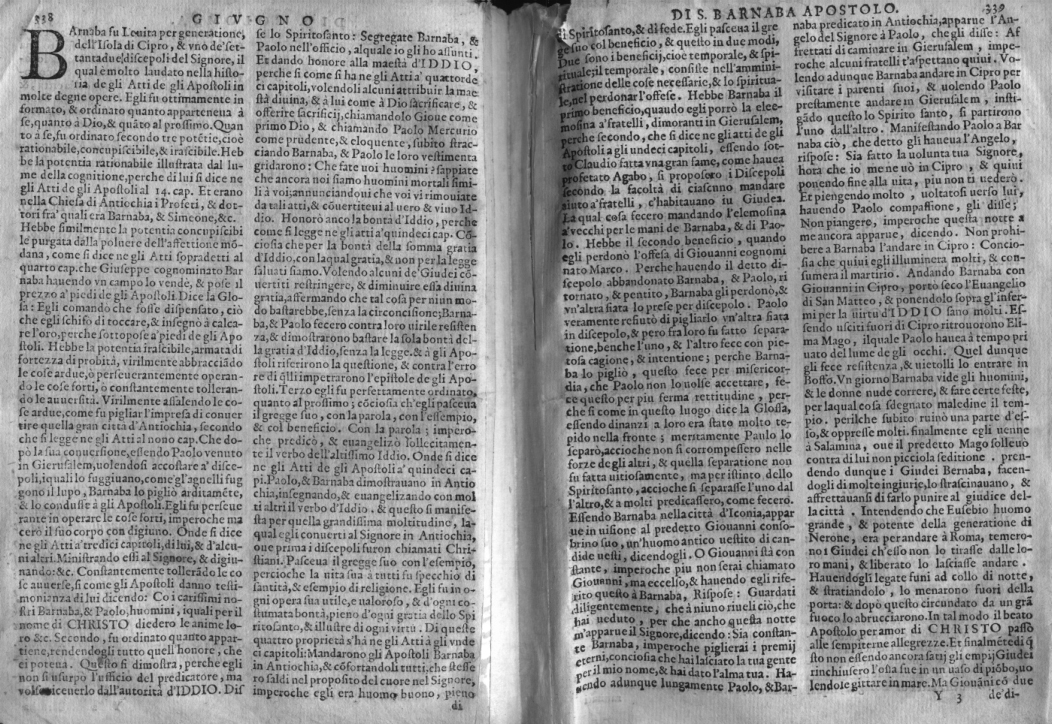 338
GIVGNO
BArnaba fu Leuita per generatione,
dell'Isola di Cipro, & vno de'set-
tantadue discepoli del Signore, il
qual'e molto laudato nella histo-
ria de gli Atti de gli Apostoli in
molte degne opere. Egli fu ottimamente in
formato, & ordinato quanto apparteneua à
se, quanto à Dio, & quãto al prossimo. Quan
to à se, fu ordinato secondo tre potẽtie, cioè
rationabile, concupiscibile, & irascibile. Heb
be la potentia rationabile illustrata dal lu-
me della cognitione, perche di lui si dice ne
gli Atti de gli Apostoli al 14. cap. Et erano
nella Chiesa di Antiochia i Profeti, & dot-
tori fra' quali era Barnaba, & Simeone, &c.
Hebbe similmente la potentia concupiscibi
le purgata dalla poluere dell'affettione mõ-
dana, come si dice ne gli Atti sopradetti al
quarto cap. che Giuseppe cognominato Bar
naba hauendo vn campo lo vendè, & pose il
prezzo a'piedi de gli Apostoli. Dice la Glo-
sa: Egli comandò che fosse dispensato, ciò
che egli schifò di toccare, & insegnò à calca-
re l'oro, perche sottopose a'piedi de gli Apo
stoli. Hebbe la potentia irascibile, armata di
fortezza di probità, virilmente abbracciãdo
le cose ardue, ò perseuerantemente operan-
do le cose forti, ò constantemente tolleran-
do le auuersità. Virilmente assalendo le co-
se ardue, come fu pigliar l'impresa di conuer
tire quella gran città d'Antiochia, secondo
che si legge ne gli Atti al nono cap. Che do-
pò la sua conuersione, essendo Paolo venuto
in Gierusalem, uolendosi accostare a' disce-
poli, i quali lo fuggiuano, come gl'agnelli fug
gono il lupo, Barnaba lo pigliò arditamẽte,
& lo condusse à gli Apostoli. Egli fu perseue
rante in operare le cose forti, imperoche ma
cerò il suo corpo con digiuno. Onde si dice
ne gli Atti a'tredici capitoli, di lui, & d'alcu-
ni altri. Ministrando essi al Signore, & digiu-
nando: &c. Constantemente tollerãdo le co
se auuerse, si come gli Apostoli danno testi-
monianza di lui dicendo: Co i carissimi no-
stri Barnaba, & Paolo, huomini, i quali per il
nome di CHRISTO diedero le anime lo-
ro &c. Secondo, fu ordinato quanto appar-
tiene, rendendogli tutto quell'honore, che
ei potena. Questo si dimostra, perche egli
non si usurpò l'ufficio del predicatore, ma
volse riceuerlo dall'autorità d'IDDIO. Dis
se lo Spiritosanto: Segregate Barnaba, &
Paolo nell'officio, al quale io gli ho assunti.
Et dando honore alla maestà d'IDDIO,
perche si come si ha ne gli Atti a' quattorde
ci capitoli, volendoli alcuni attribuir la mae
stà diuina, & à lui come à Dio sacrificare, &
offerire sacrificij, chiamandolo Gioue come
primo Dio, & chiamando Paolo Mercurio
come prudente, & eloquente, subito strac-
ciando Barnaba, & Paolo le loro vestimenta
gridarono: Che fate uoi huomini? sappiate
che ancora noi siamo huomini mortali simi-
li à voi, annunciandoui che voi vi rimouiate
da tali atti, & cõuertiteui al uero & viuo Id-
dio. Honorò anco la bontà d'Iddio, perche
come si legge ne gli atti a'quindeci cap. Cõ-
ciosia che per la bontà della somma gratia
d'Iddio, con la qual gratia, & non per la legge
saluati siamo. Volendo alcuni de' Giudei cõ-
uertiti restringere, & diminuire essa diuina
gratia, affermando che tal cosa per niun mo-
do bastarebbe, senza la circoncisione; Barna-
ba, & Paolo fecero contra loro uirile resisten
za, & dimostrarono bastare la sola bontà del-
la gratia d'Iddio, senza la legge. & à gli Apo-
stoli riferirono la questione, & contra l'erro
re di q̃lli impetrarono l'epistole de gli Apo-
stoli. Terzo egli fu perfettamente ordinato,
quanto al prossimo; cõciosia ch'egli pasceua
il gregge suo, con la parola, con l'essempio,
& col beneficio. Con la parola; impero-
che predicò, & euangelizò sollecitamen-
te il verbo dell'altissimo Iddio. Onde si dice
ne gli Atti de gli Apostoli a' quindeci ca-
pi. Paolo, & Barnaba dimostrauano in Antio
chia, insegnando, & euangelizando con mol
ti altri il verbo d'Iddio. & questo si manife-
sta per quella grandissima moltitudine, la-
qual egli conuertì al Signore in Antiochia,
oue prima i discepoli furon chiamati Chri-
stiani. Pasceua il gregge suo con l'esempio,
percioche la uita sua a tutti fu specchio di
santità, & esempio di religione. Egli fu in o-
gni opera sua utile, e ualoroso, & d'ogni co-
stumata bontà, pieno d'ogni gratia dello Spi
ritosanto, & illustre di ogni virtù. Di queste
quattro proprietà s'hà ne gli Atti à gli vnde
ci capitoli: Mandarono gli Apostoli Barnaba
in Antiochia, & cõfortando li tutti, che stesse
ro saldi nel proposito del cuore nel Signore,
imperoche egli era huomo buono, pieno
di
DI S. BARNABA APOSTOLO.
339
di Spiritosanto, & di fede. Egli pasceua il gre
ge suo col beneficio, & questo in due modi,
Due sono i beneficij, cioè temporale, & spi-
rituale; il temporale, consiste nell'ammini-
stratione delle cose necessarie, & lo spiritua-
le, nel perdonar l'offese. Hebbe Barnaba il
primo beneficio, quando egli portò la elee-
mosina a'fratelli, dimoranti in Gierusalem,
perche secondo, che si dice ne gli atti de gli
Apostoli a gli undeci capitoli, essendo sot-
to Claudio fatta vna gran fame, come hauea
profetato Agabo, si proposero i Discepoli
secondo la facoltà di ciascuno mandare
aiuto a'fratelli, c'habitauano in Giudea.
La qual cosa fecero mandando l'elemosina
a'vecchi per le mani de Barnaba, & di Pao-
lo. Hebbe il secondo beneficio, quando
egli perdonò l'offesa di Giouanni cognomi
nato Marco. Perche hauendo il detto di-
scepolo abbandonato Barnaba, & Paolo, ri
tornato, & pentito, Barnaba gli perdonò, &
vn'altra fiata lo prese per discepolo. Paolo
veramente refiutò di pigliarlo vn'altra fiata
in discepolo, & però fra loro fu fatto separa-
tione, benche l'uno, & l'altro fece con pie-
tosa cagione, & intentione; perche Barna-
ba lo pigliò, questo fece per misericor-
dia, che Paolo non lo uolse accettare, fe-
ce questo per piu ferma rettitudine, per-
che si come in questo luogo dice la Glossa,
essendo dinanzi a loro era stato molto te-
pido nella fronte; meritamente Paulo lo
separò, accioche non si corrompessero nelle
forze de gli altri, & quella separatione non
fu fatta uitiosamente, ma per istinto dello
Spiritosanto, accioche si separasse l'uno dal
l'altro, & à molti predicassero, come fecero.
Essendo Barnaba nella città d'Iconia, appar
ue in uisione al predetto Giouanni conso-
brino suo, un'huomo antico uestito di can-
dide uesti, dicendogli. O Giouanni stà con
stante, imperoche piu non serai chiamato
Giouanni, ma eccelso, & hauendo egli rife-
rito questo à Barnaba, Rispose: Guardati
diligentemente, che à niuno riueli ciò, che
hai ueduto, per che ancho questa notte
m'apparue il Signore, dicendo: Sia constan-
te Barnaba, imperoche piglierai i premij
eterni, conciosia che hai lasciato la tua gente
per il mio nome, & hai dato l'alma tua. Ha-
uendo adunque lungamente Paolo, & Bar-
naba predicato in Antiochia, apparue l'An-
gelo del Signore à Paolo, che gli disse: Af
frettati di caminare in Gierusalem, impe-
roche alcuni fratelli t'aspettano quiui. Vo-
lendo adunque Barnaba andare in Cipro per
visitare i parenti suoi, & uolendo Paolo
prestamente andare in Gierusalem, insti-
gãdo questo lo Spirito santo, si partirono
l'uno dall'altro. Manifestando Paolo a Bar
naba ciò, che detto gli haueua l'Angelo,
rispose: Sia fatto la uolunta tua Signore,
hora che io me ne uò in Cipro, & quiui
ponendo fine alla uita, piu non ti uederò.
Et piengendo molto, uoltatosi uerso lui,
hauendo Paolo compassione, gli disse;
Non piangere, imperoche questa notte a
me ancora apparue, dicendo. Non prohi-
bere a Barnaba l'andare in Cipro: Concio-
sia che quiui egli illuminerà molti, & con-
sumerà il martirio. Andando Barnaba con
Giouanni in Cipro, portò seco l'Euangelio
di San Matteo, & ponendolo sopra gl'infer-
mi per la uirtù d'IDDIO sanò molti. Es-
sendo usciti fuori di Cipro ritrouorono Eli-
ma Mago, il quale Paolo hauea à tempo pri
uato del lume de gli occhi. Quel dunque
gli fece resistenza, & uietolli lo entrare in
Boffo. Vn giorno Barnaba vide gli huomini,
& le donne nude correre, & fare certe feste,
per laqual cosa sdegnato maledine il tem-
pio. perilche subito ruinò una parte d'es-
so, & oppresse molti. finalmente egli uenne
à Salamina, oue il predetto Mago solleuò
contra di lui non picciola seditione. pren-
dendo dunque i Giudei Bernaba, facen-
dogli di molte ingiurie, lo strascinauano, &
affrettauansi di farlo punire al giudice del-
la città. Intendendo che Eusebio huomo
grande, & potente della generatione di
Nerone, era per andare à Roma, temero-
no i Giudei ch'esso non lo tirasse dalle lo-
ro mani, & liberato lo lasciasse andare.
Hauendogli legate funi ad collo di notte,
& stratiandolo, lo menarono fuori della
porta: & dopò questo circundato da un grã
fuoco lo abrucciarono. In tal modo il beato
Apostolo per amor di CHRISTO passò
alle sempiterne allegrezze. Et finalmẽte di q̃
sto non essendo ancora satij gli empij Giudei
rinchiusero l'ossa sue in un uaso di piõbo, uo
lendole gittare in mare. Ma Giouãni cõ due
Y 3
de' di-